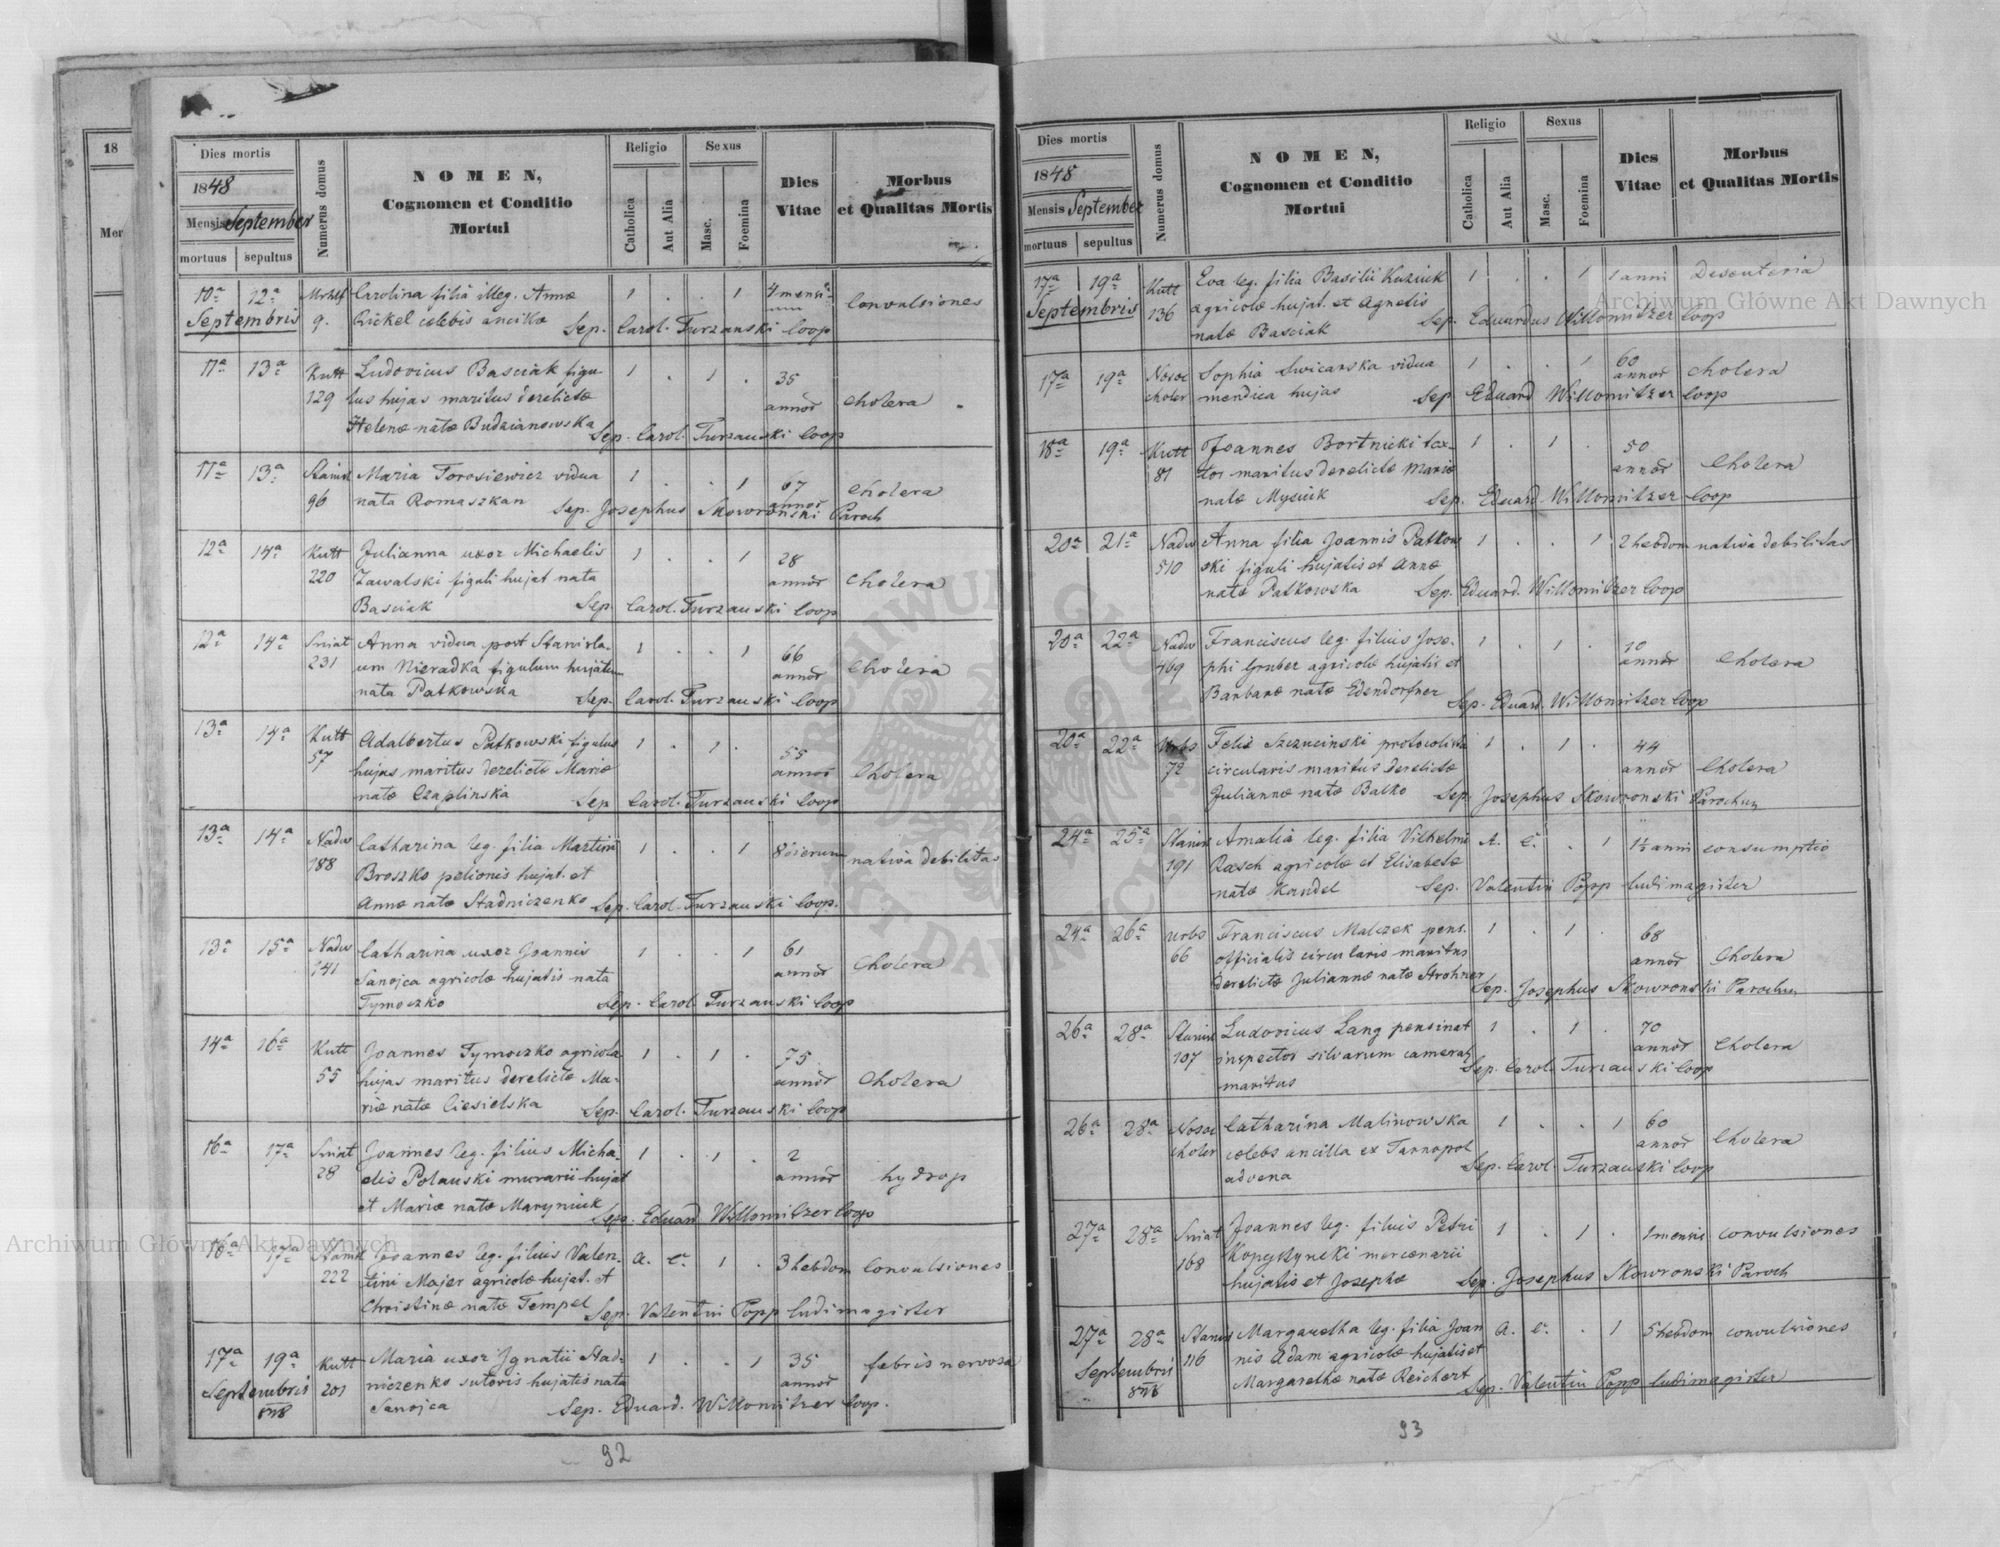 18
Mer
Dies mortis
1848
Mensis September
mortuus sepultus
Numerus domus
NOMEN,
Cognomen et Conditio
Mortui
Religio
Catholica
Aut Alia
Sexus
Masc.
Foemina
Dies
Vitae
Morbus
et Qualitas Mortis
10ª 12ª Carolina filia illeg. Annæ 1 . . 1 4 mensi- Convulsiones
Septembris 9. Rickel cælebis ancillæ Sep. Carol. Turzanski Coop
11ª 13ª Kutt Ludovicus Basciak figu 1 . 1 . 35
129 lus hujas maritus derelictæ annor cholera
Helenæ natæ Budzianowska Sep. Carol. Turzanski Coop
11ª 13ª Stanisl Maria Torosiewicz vidua 1 . . 1 67 cholera
96 nata Romaszkan annor Sep. Josephus Skowronski Paroch
12ª 14ª Kutt Julianna uxor Michaelis 1 . . 1 28
220 Zawalski figuli hujat nata annor cholera
Basciak Sep. Carol. Turzanski Coop
12ª 14ª Sniat Anna vidua post Stanisla- 1 . . 1 66
231 um Nieradka figulum hujatem annor cholera
nata Patkowska Sep. Carol. Turzanski Coop
13ª 14ª Kutt Adalbertus Patkowski figulus 1 . 1 . 55
57 hujas maritus derelictæ Mariæ annor Cholera
natæ Czaplinska Sep Carol. Turzanski Coop
13ª 14ª Nadw Catharina leg. filia Martini 1 . . 1 8 dierum nativa debilitas
188 Broszko pelionis hujat. et
Annæ natæ Stadniczenko Sep. Carol. Turzanski Coop.
13ª 15ª Nadw Catharina uxor Joannis 1 . . 1 61
141 Sanojca agricolæ hujatis nata annor Cholera
Tymoczko Sep. Carol. Turzanski Coop
14ª 16ª Kutt Joannes Tymoczko agricola 1 . 1 . 75
55 hujas maritus derelictæ Ma- annor Cholera
riæ natæ Ciesielska Sep. Carol. Turzanski Coop
16ª 17ª Sniat Joannes leg. filius Micha- 1 . 1 . 2
28 elis Polanski murarii hujat annor hydrop
et Mariæ natæ Maryniuk Sep. Eduard Willomitzer Coop
16ª 17ª Joannes leg. filius Valen- a. c. 1 . 3 hebdom Convulsiones
222 tini Majer agricolæ hujat. et
Christinæ natæ Tempel Sep. Valentin Popp ludimagister
17ª 19ª Kutt Maria uxor Ignatii Stad- 1 . . 1 35 febris nervosa
Septembris 201 niczenko sutoris hujatis nata annor
848 Sanojca Sep. Eduard. Willomitzer Coop.
92
Dies mortis
1848
Mensis September
mortuus sepultus
Numerus domus
NOMEN,
Cognomen et Conditio
Mortui
Religio
Catholica
Aut Alia
Sexus
Masc.
Foemina
Dies
Vitae
Morbus
et Qualitas Mortis
17ª 19ª Kutt Eva leg. filia Basilii Kuzniuk 1 . . 1 1 anni Desenteria
Septembris 136 agricolæ hujat. et Agnetis Sep. Eduardus Willomitzer Coop
natæ Basciak
17ª 19ª Nosoc Sophia Swicarska vidua 1 . . 1 60 annor cholera
choler mendica hujas Sep Eduard Willomitzer Coop
18ª 19ª Kutt Joannes Bortnicki tex- 1 . 1 . 50
81 tor maritus derelictæ Mariæ annor Cholera
natæ Mysiuk Sep. Eduard. Willomitzer Coop
20ª 21ª Nadw Anna filia Joannis Patkow 1 . . 1 2 hebdom nativa debilitas
510 ski figuli hujatis et Annæ
natæ Patkowska Sep. Eduard. Willomitzer Coop
20ª 22ª Nadw Franciscus leg. filius Jose- 1 . 1 . 10
169 phi Gruber agricolæ hujatis et annor Cholera
Barbaræ natæ Edendorfner Sep. Eduard. Willomitzer Coop
20ª 22ª Urbs Felix Szczucinski protocolista 1 . 1 . 44
72 circularis maritus derelictæ annor Cholera
Juliannæ natæ Balko Sep. Josephus Skowronski Parochus
24ª 25ª Stanisl Amalia leg. filia Vilhelmi A. C. . 1 1½ anni consumptio
191 Rasch agricolæ et Elisabetæ
natæ Kandel Sep. Valentin Popp ludimagister
24ª 26ª Urbs Franciscus Malczek pens. 1 . 1 . 68
66 officialis circularis maritus annor Cholera
derelictæ Juliannæ natæ Strohner Sep. Josephus Skowronski Parochus
26ª 28ª Stanisl Ludovicus Lang pensinat 1 . 1 . 70
107 inspector silvarum cameral annor Cholera
maritus Sep. Carol. Turzanski Coop
26ª 28ª Nosoc Catharina Malinowska 1 . . 1 60
choler cælebs ancilla ex Tarnopol annor Cholera
advena Sep. Carol. Turzanski Coop
27ª 28ª Sniat Joannes leg. filius Petri 1 . 1 . 1 mensis convulsiones
168 Kopystynski mercenarii
hujatis et Josephæ Sep. Josephus Skowronski Paroch
27ª 28ª Stanis Margaretha leg. filia Joan a. c. . 1 5 hebdom convulsiones
Septembris 116 nis Adam agricolæ hujatis et
848 Margarethæ natæ Reichert Sep. Valentin Popp ludimagister
93
Archiwum Główne Akt Dawnych
Archiwum Główne Akt Dawnych
ARCHIWUM GŁÓWNE AKT DAWNYCH